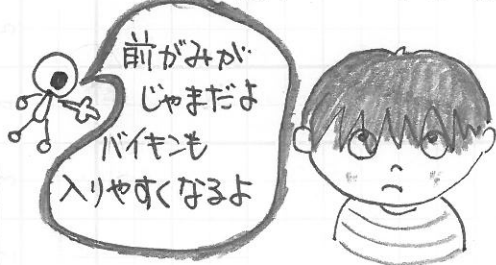 前がみが
じゃまだよ
バイキンも
入りやすくなるよ